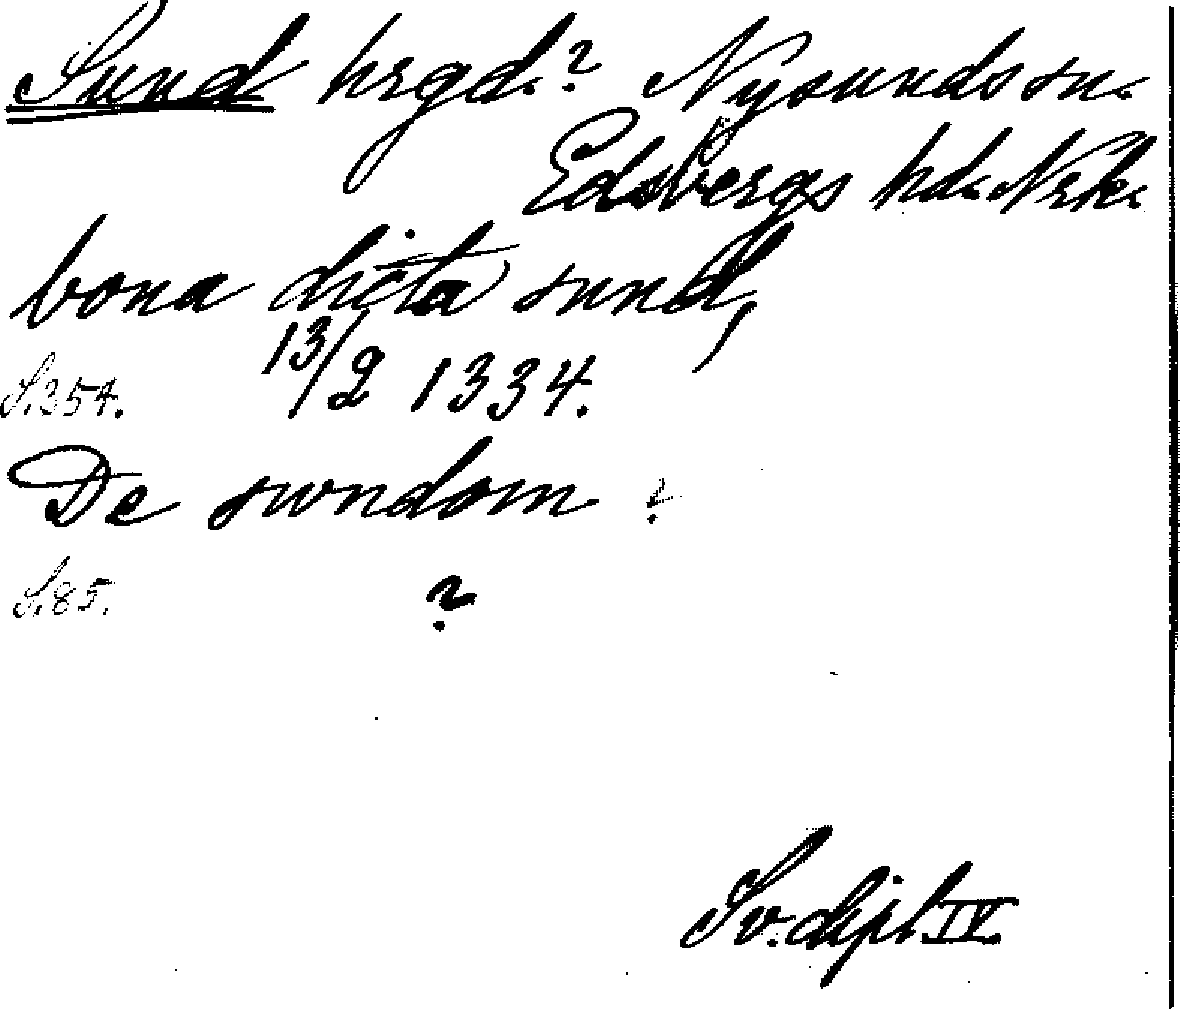 Sund hrgd.? Nysunds sn.
Edsbergs hd. Nrk.
bona dicta sund,
S. 254. 13/2 1334.
De swndom ?
S. 85. ?
Sv. dipl. IV.